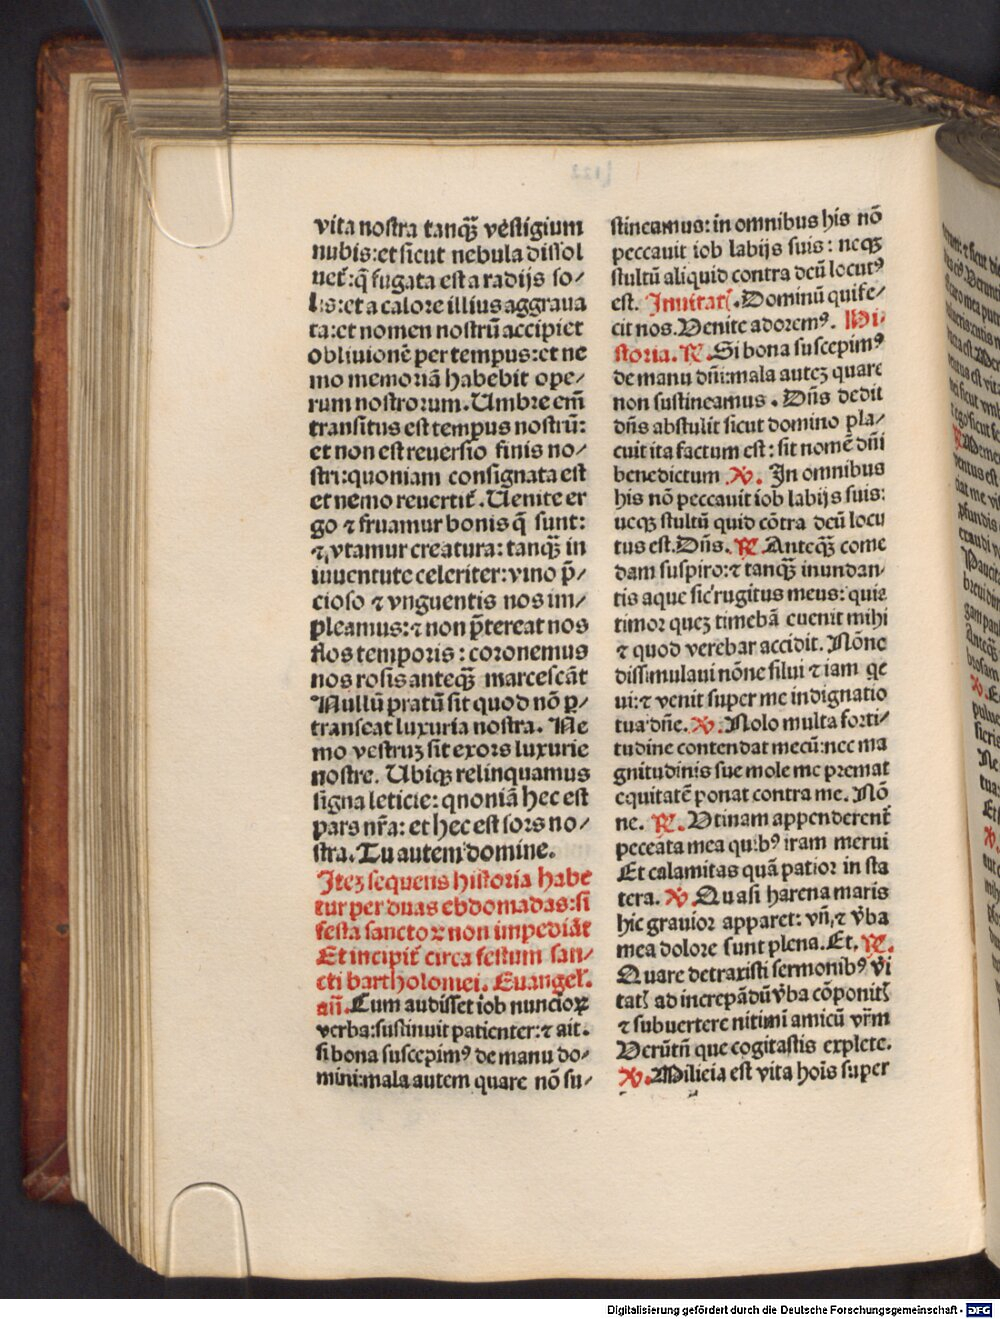 vita nostra tanqꝫ̄ vestigium
nubis:et sicut nebula dissol
uet᷑:q̄ fugata est a radijs so⸗
lis:et a calore illius aggraua
ta:et nomen nostrū accipiet
obliuionē per tempus:et ne
mo memoriā habebit ope⸗
rum nostrorum.Umbre em̄
transitus est tempus nostrū:
et non est reuersio finis no⸗
stri:quoniam consignata est
et nemo reuertit᷑.Uenite er
go ⁊ fruamur bonis q̄ sunt:
⁊ vtamur creatura:tanqꝫ̄ in
iuuentute celeriter:vino p̄⸗
cioso ⁊ vnguentis nos im⸗
pleamus:⁊ non p̄tereat nos
flos temporis:coronemus
nos rosis anteqꝫ̄ marcescāt
Nullū pratū sit quod nō ꝑ⸗
transeat luxuria nostra. Ne
mo vestruꝫ sit exors luxurie
nostre. Ubiqꝫ relinquamus
signa leticie:qnoniā hec est
pars nr̄a:et hec est sors no⸗
stra.Tu autem domine.
Iteꝫ sequens historia habe
tur per duas ebdomadas:si
festa sanctoꝝ non impediāt
Et incipit᷑ circa festum san⸗
cti bartholomei. Euangel᷑.
añ.Cum audisset iob nuncioꝝ
verba:sustinuit patienter:⁊ ait.
si bona suscepimꝰ de manu do⸗
mini:mala autem quare nō su⸗
stineamus:in omnibus his nō
peccauit iob labijs suis:neqꝫ
stultū aliquid contra deū locutꝰ
est. Inuitat᷑.Dominū qui fe⸗
cit nos.Uenite adoremꝰ. Hi⸗
storia. ℟.Si bona suscepimꝰ
de manu dn̄i:mala auteꝫ quare
non sustineamus. Dn̄s dedit
dn̄s abstulit sicut domino pla⸗
cuit ita factum est:sit nomē dn̄i
benedictum ℣. In omnibus
his nō peccauit iob labijs suis:
ueqꝫ stultū quid cōtra deū locu
tus est.Dn̄s. ℟.Anteqꝫ̄ come
dam suspiro:⁊ tanqꝫ̄ inundan⸗
tis aque sic rugitus meus:quia
timor queꝫ timebā euenit mihi
⁊ quod verebar accidit. Nōne
dissimulaui nōne silui ⁊ iam qe
ui:⁊ venit super me indignatio
tua dn̄e. ℣.Nolo multa forti⸗
tudine contendat mecū:nec ma
gnitudinis sue mole me premat
equitatē ponat contra me. Nō
ne. ℟.Utinam appenderent᷑
peccata mea quibꝰ iram merui
Et calamitas quā patior in sta
tera. ℣.Quasi harena maris
hic grauior apparet: vn̄,⁊ v̄ba
mea dolore sunt plena.Et. ℟.
Quare detraxisti sermonibꝰ v̄i
tat᷑ ad increpādū v̄ba cōponit᷑
⁊ subuertere nitimi amicū vr̄m
Uerūtn̄ que cogitastis explete.
℣.Milicia est vita hoīs super
Digitalisierung gefördert durch die Deutsche Forschungsgemeinschaft - DFG